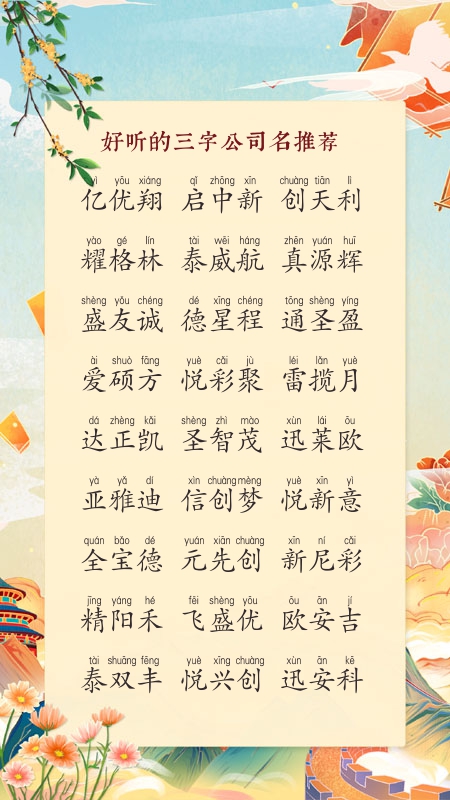 好听的三字公司名推荐
yì yōu xiáng qǐ zhōng xīn chuàng tiān lì
亿优翔 启中新 创天利
yào gé lín tài wēi háng zhēn yuán huī
耀格林 泰威航 真源辉
shèng yǒu chéng dé xīng chéng tōng shèng yíng
盛友诚 德星程 通圣盈
ài shuò fāng yuè cǎi jù léi lǎn yuè
爱硕方 悦彩聚 雷揽月
dá zhèng kǎi shèng zhì mào xùn lái ōu
达正凯 圣智茂 迅莱欧
yà yǎ dí xìn chuàng mèng yuè xīn yì
亚雅迪 信创梦 悦新意
quán bǎo dé yuán xiān chuàng xīn ní cǎi
全宝德 元先创 新尼彩
jīng yáng hé fēi shèng yōu ōu ān jí
精阳禾 飞盛优 欧安吉
tài shuāng fēng yuè xīng chuàng xùn ān kē
泰双丰 悦兴创 迅安科